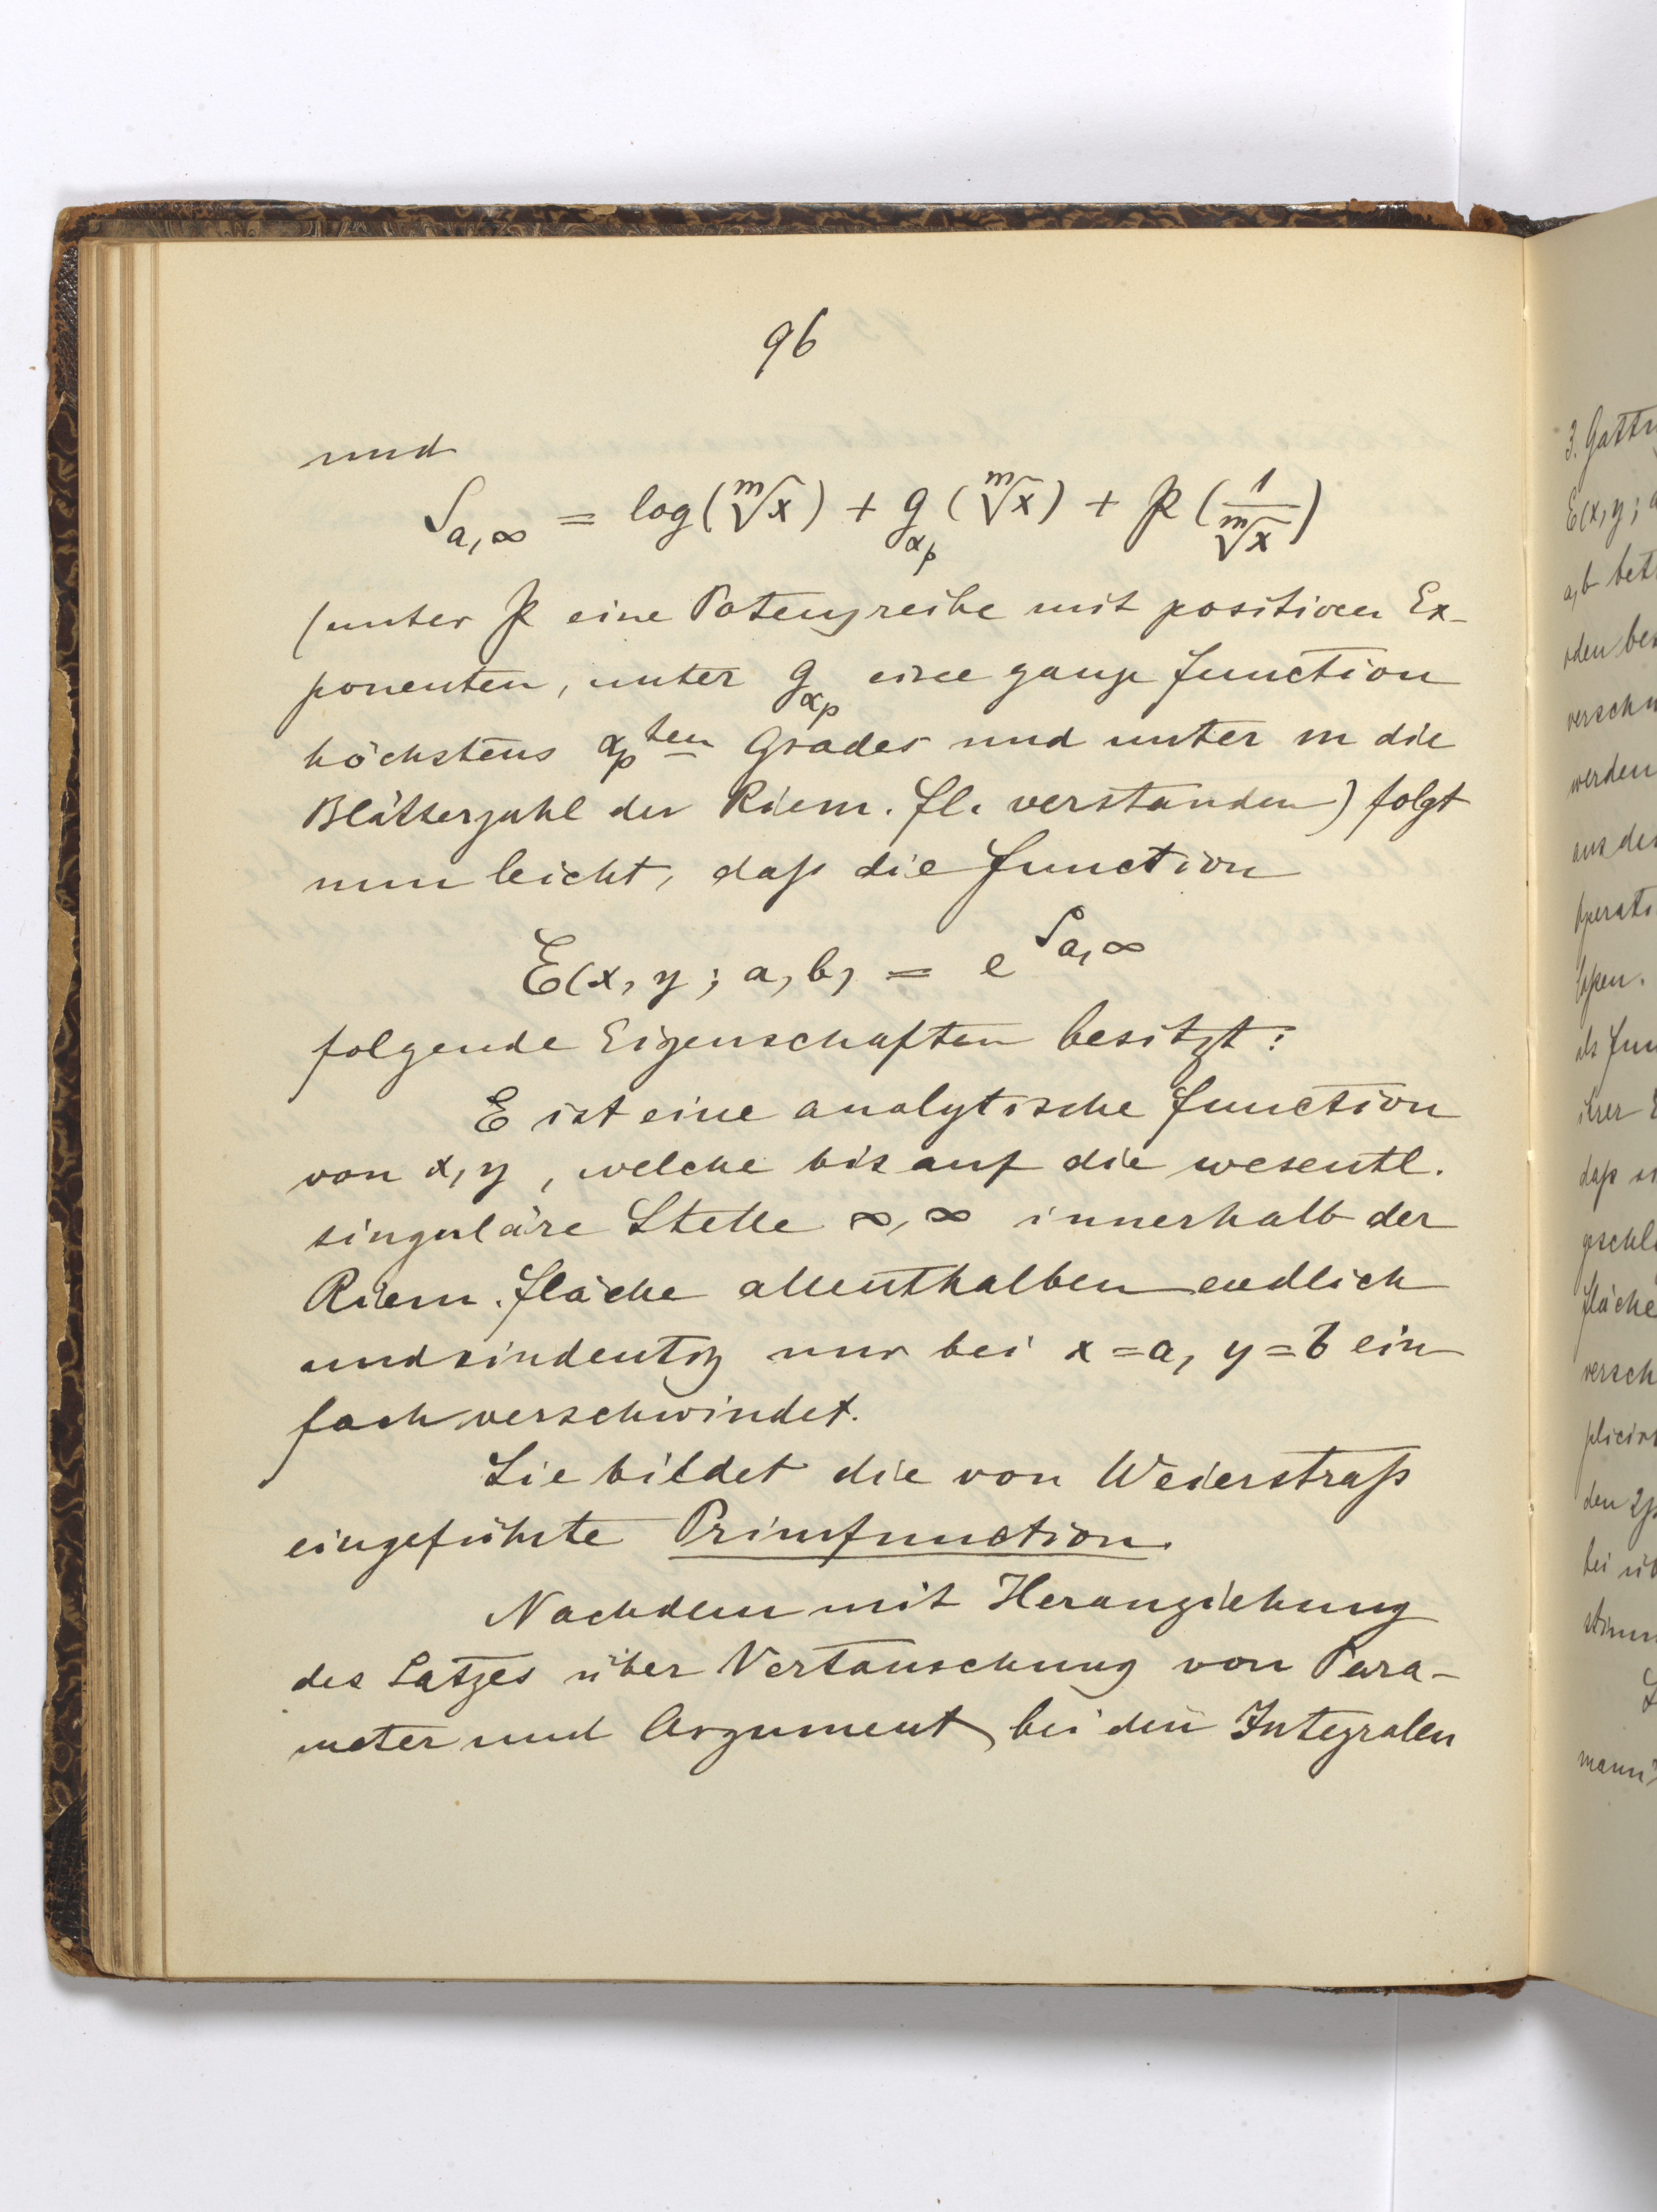 96
und
S_{a,∞} = log(\sqrt[m]{x}) + g_{α_p}(\sqrt[m]{x}) + 𝔓(\frac{1}{\sqrt[m]{x}})
(unter 𝔓 eine Potenzreihe mit positiven Ex-
ponenten, unter g_{α_p} eine ganze Function
höchstens α_p^{ten} Grades und unter m die
Blätterzahl der Riem. Fl. verstanden) folgt
nun leicht, daß die Function
E(x, y; a, b) = e^{S_{a,∞}}
folgende Eigenschaften besitzt:
E ist eine analytische Function
von x, y, welche bis auf die wesentl.
singuläre Stelle ∞, ∞ innerhalb der
Riem. Fläche allenthalben endlich
und eindeutig nur bei x = a, y = b ein
fach verschwindet.
Sie bildet die von Weierstraß
eingeführte Primfunction.
Nachdem mit Heranziehung
des Satzes über Vertauschung von Para-
meter und Argument bei den Integralen
3. Gattu
E(x, y; a
a, b bet
verschw
werden
aus de
Operati
als Fun
ihrer E
daß
Fläche
versch
plicirt
den 2p
bei üb
stimm
mann